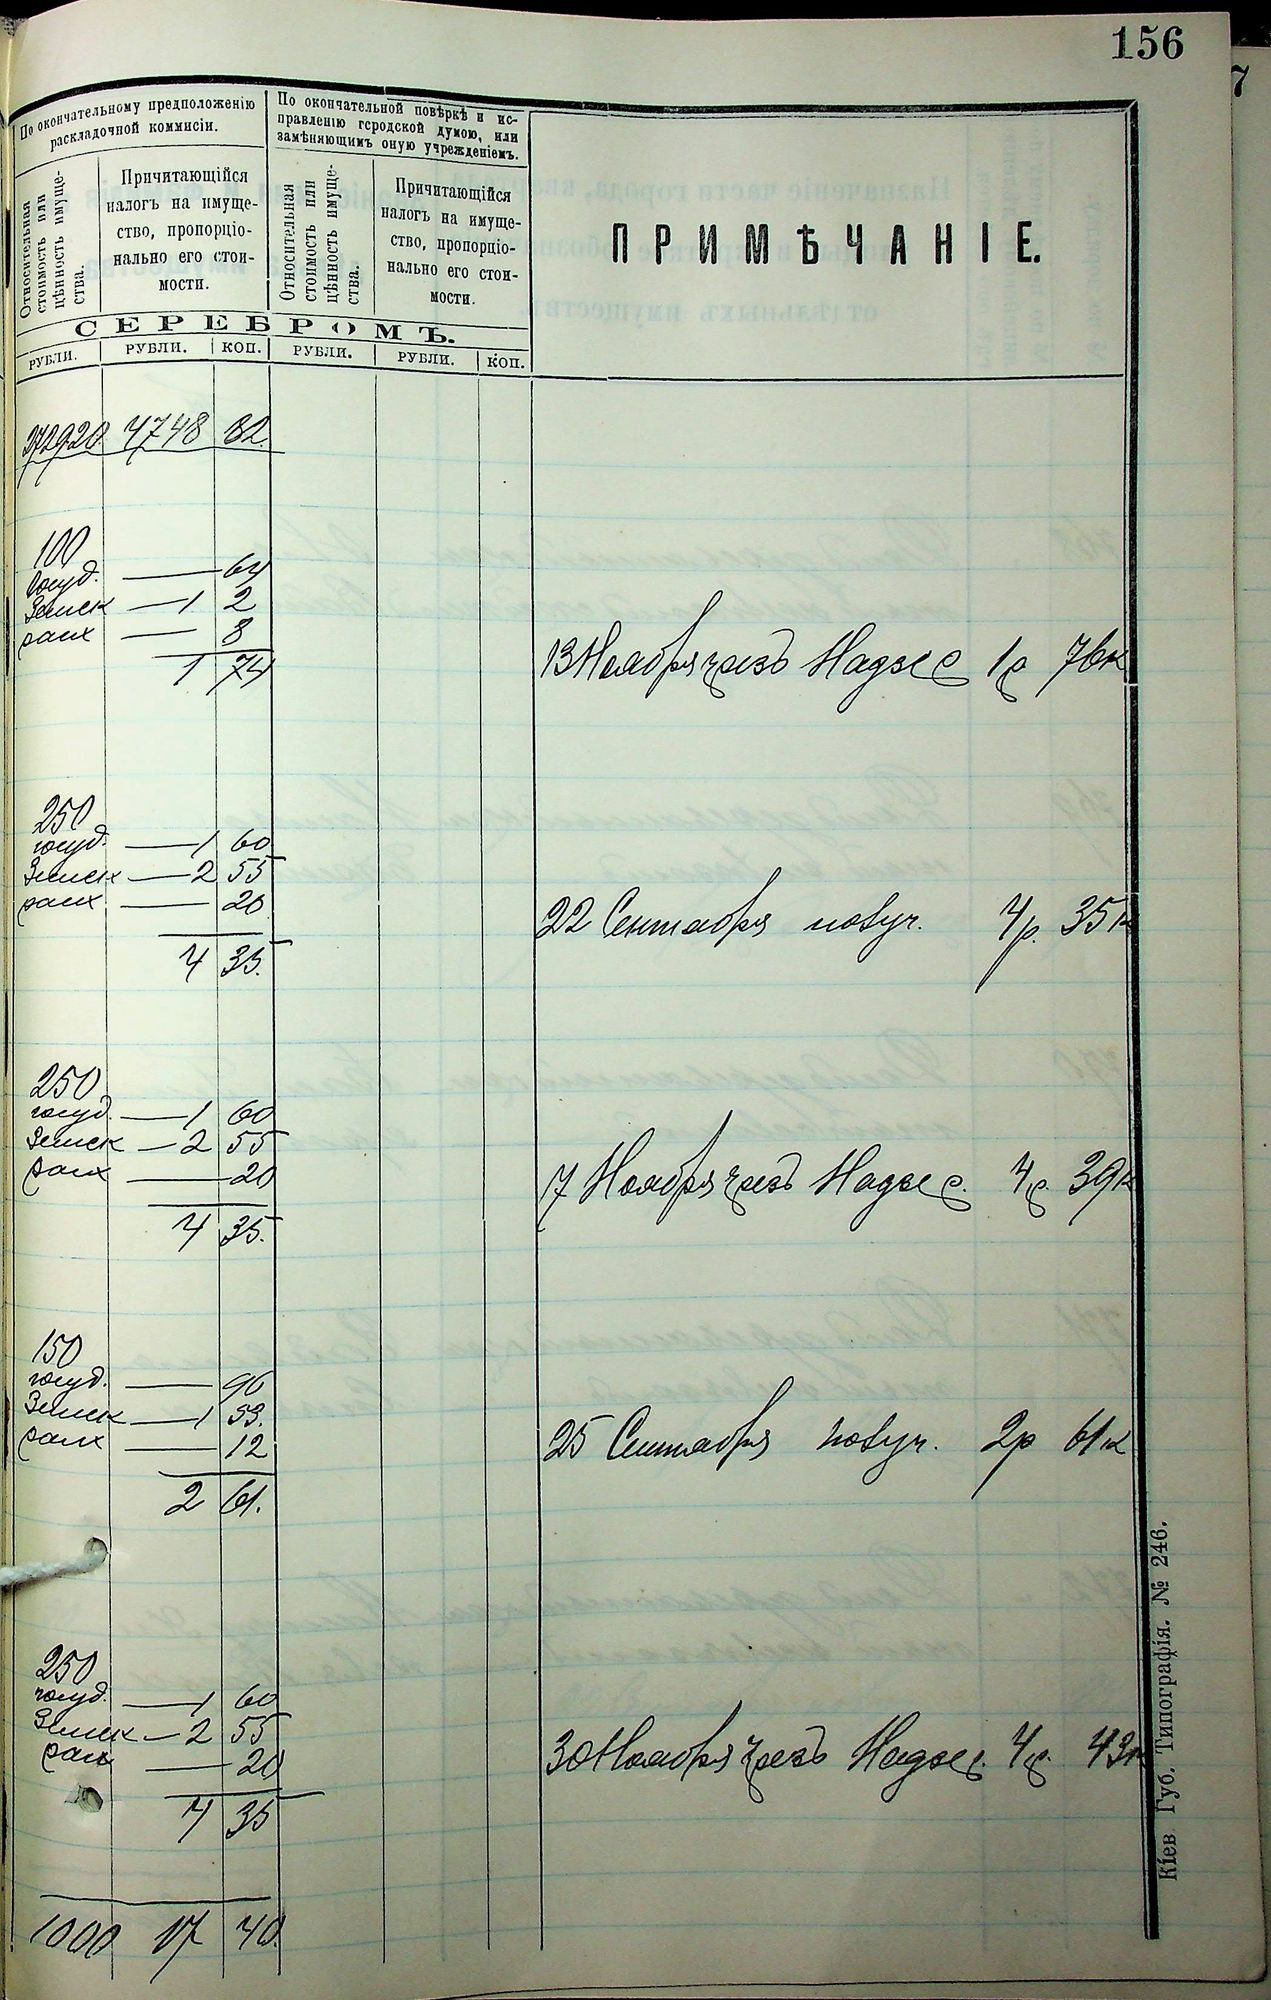 156
По окончательному предположенію
раскладочной коммисіи.
По окончательной повѣркѣ и ис-
правленію городской думою, или
замѣняющимъ оную учрежденіемъ.
Относительная
стоимость или
цѣнность имуще-
ства.
Причитающійся
налогъ на имуще-
ство, пропорціо-
нально его стои-
мости.
Относительная
стоимость или
цѣнность имуще-
ства.
Причитающійся
налогъ на имуще-
ство, пропорціо-
нально его стои-
мости.
ПРИМѢЧАНІЕ.
СЕРЕБРОМЪ.
РУБЛИ. РУБЛИ. КОП. РУБЛИ. РУБЛИ. КОП.
272920 4748 82
100
госуд. — 64
Земск — 1 2
8
1 74
13 Ноября чрезъ Надзер 1р 76к
250
госуд. — 1 60
Земск — 2 55
20
4 35.
22 Сентября получ. 4р. 35к
250
госуд. — 1 60
Земск — 2 55
20
4 35.
7 Ноября чрезъ Надзер. 4р. 39к
150
госуд. — 96
Земск — 1 53.
12
2 61.
25 Сентября получ. 2р 61к
250
госуд. — 1 60
Земск — 2 55
20
4 35
30 Ноября чрезъ Надзер. 4р. 43к
1000 17 40.
Кіев Губ. Типографія. № 246.